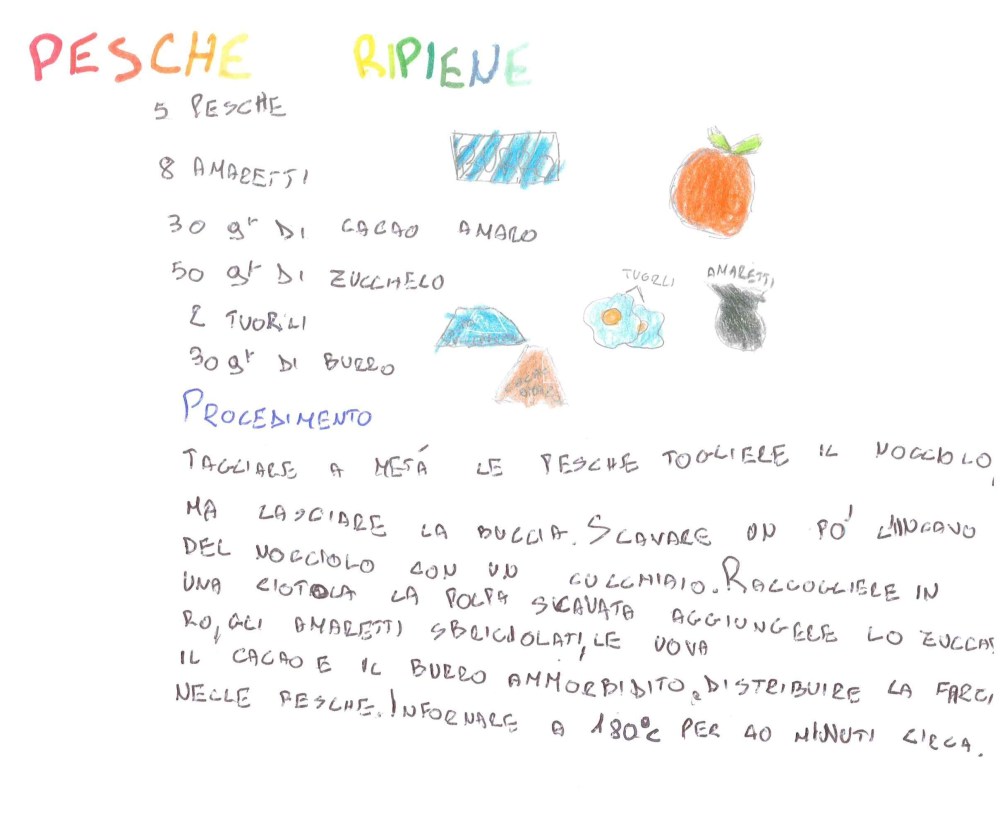 PESCHE RIPIENE
5 PESCHE
8 AMARETTI
30 gr DI CACAO AMARO
50 gr DI ZUCCHELO
2 TUORLI
30 gr DI BURRO
TUORLI
AMARETTI
PROCEDIMENTO
TAGLIARE A METÁ LE PESCHE TOGLIERE IL NOCCIOLO,
MA LASCIARE LA BUCCIA. SCAVARE UN PO' L'INCAVO
DEL NOCCIOLO CON UN CUCCHIAIO. RACCOGLIERE IN
UNA CIOTOLA LA POLPA SCAVATA AGGIUNGERE LO ZUCCHE
RO, GLI AMARETTI SBRICIOLATI, LE UOVA
IL CACAO E IL BURRO AMMORBIDITO, DISTRIBUIRE LA FARCI
NELLE PESCHE. INFORNARE A 180°C PER 40 MINUTI CIRCA.